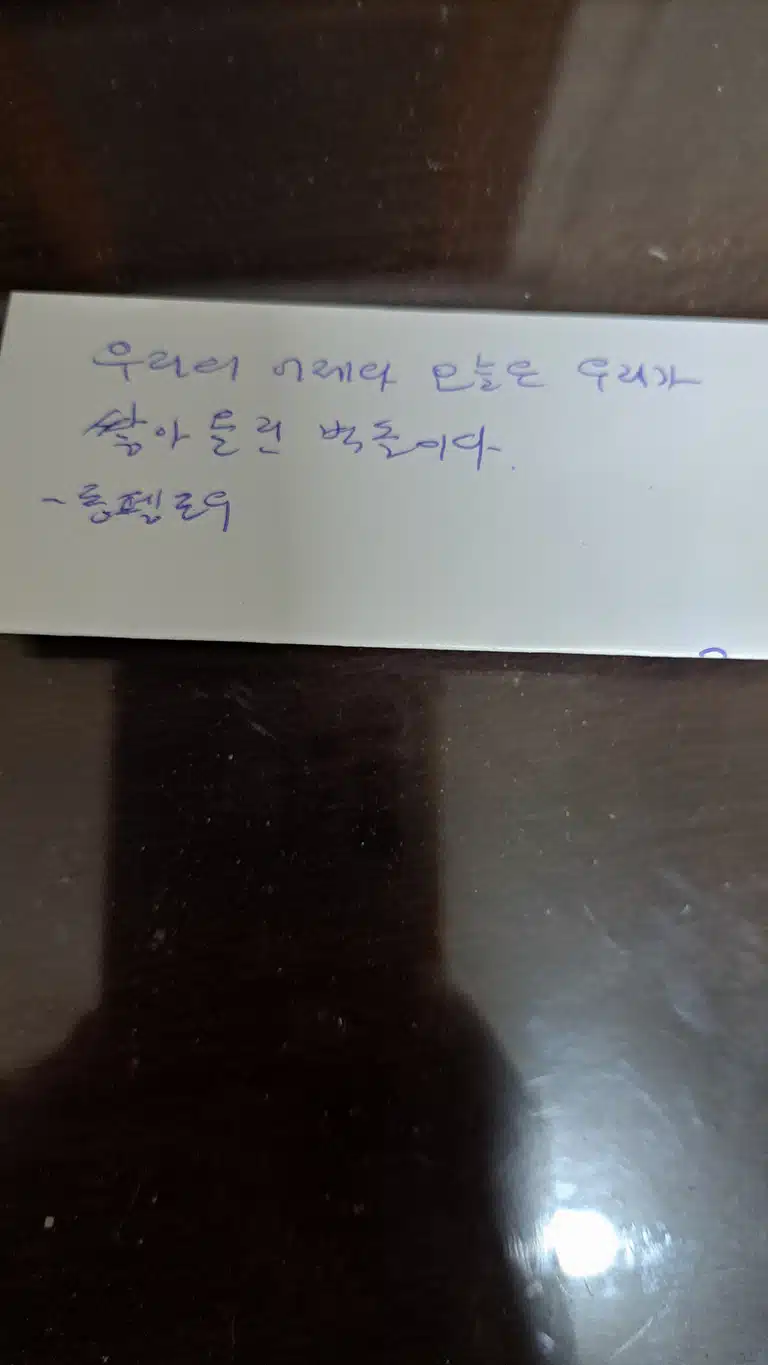 우리의 어제와 오늘은 우리가
쌓아 올린 벽돌이다.
- 롱펠로우